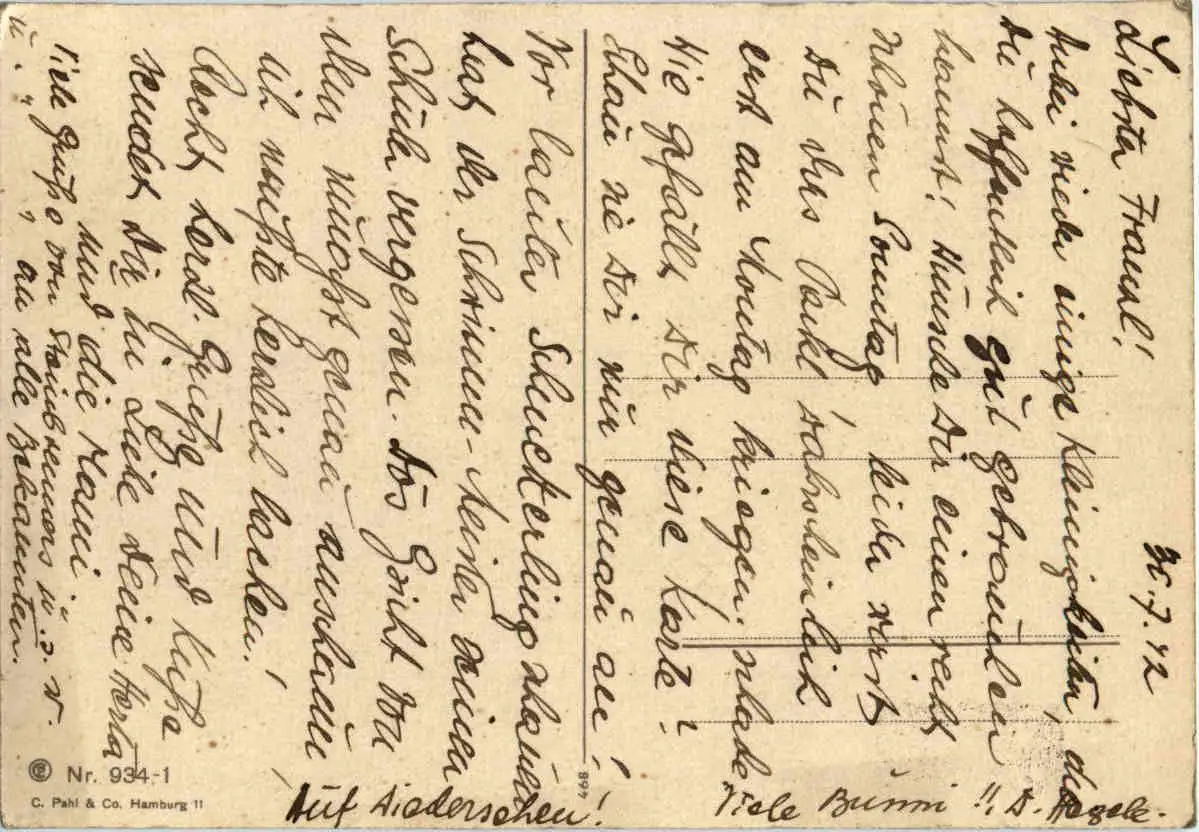 30.7.42
Liebste Franzl!
Anbei wieder einige Kleinigkeiten, die
Du hoffentlich gut gebrauchen
kannst! Wünsche Dir einen recht
schönen Sonntag leider wirst
Du das Packl wahrscheinlich
erst am Montag kriegen. schade
Wie gefällt Dir diese Karte?
Schau sie Dir nur genau an!
Vor lauter
hat der Schwimm-Meister seinen
Schüler vergessen. Das Gsicht von
dem mußt genau anschaun
ich mußte herzlich lachen!
Recht herzl. Grüße und Küße
sendet Dir in Liebe Deine Herta
und die Mami
Viele Grüße von u.s.w.
u. " " an alle Bekannten.
Auf Wiedersehen!
Viele Bussi!! D.
Nr. 934-1
C. Pahl & Co. Hamburg 11
868